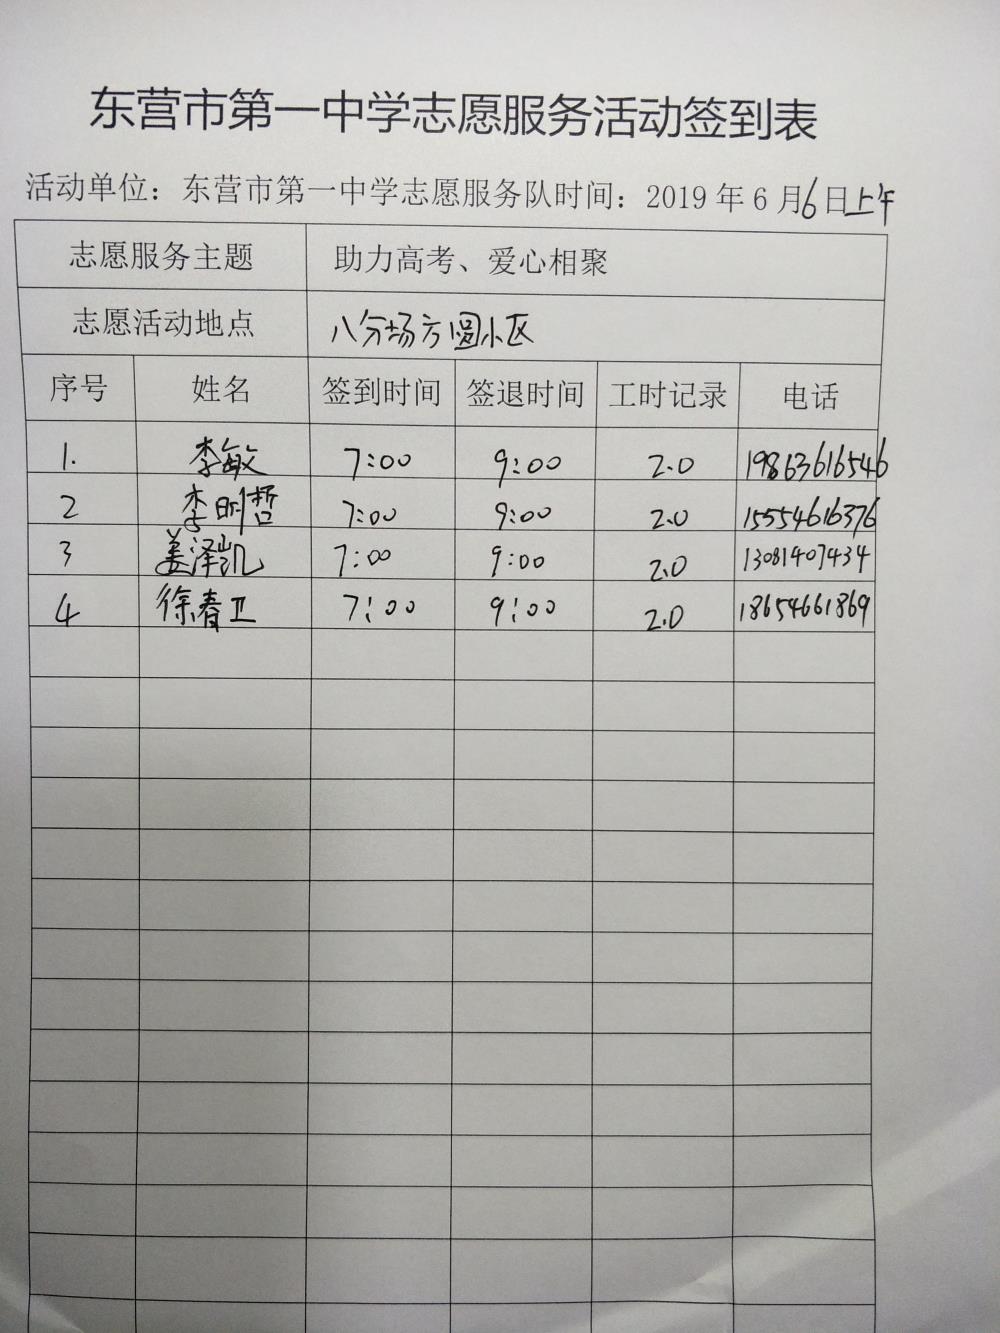 东营市第一中学志愿服务活动签到表
活动单位：东营市第一中学志愿服务队时间：2019年6月6日上午
志愿服务主题 助力高考、爱心相聚
志愿活动地点 八分场方圆小区
序号 姓名 签到时间 签退时间 工时记录 电话
1. 李敏 7:00 9:00 2.0 19863616546
2 李明哲 7:00 9:00 2.0 15554616376
3 姜泽凯 7:00 9:00 2.0 13081407434
4 徐春卫 7:00 9:00 2.0 18654661869